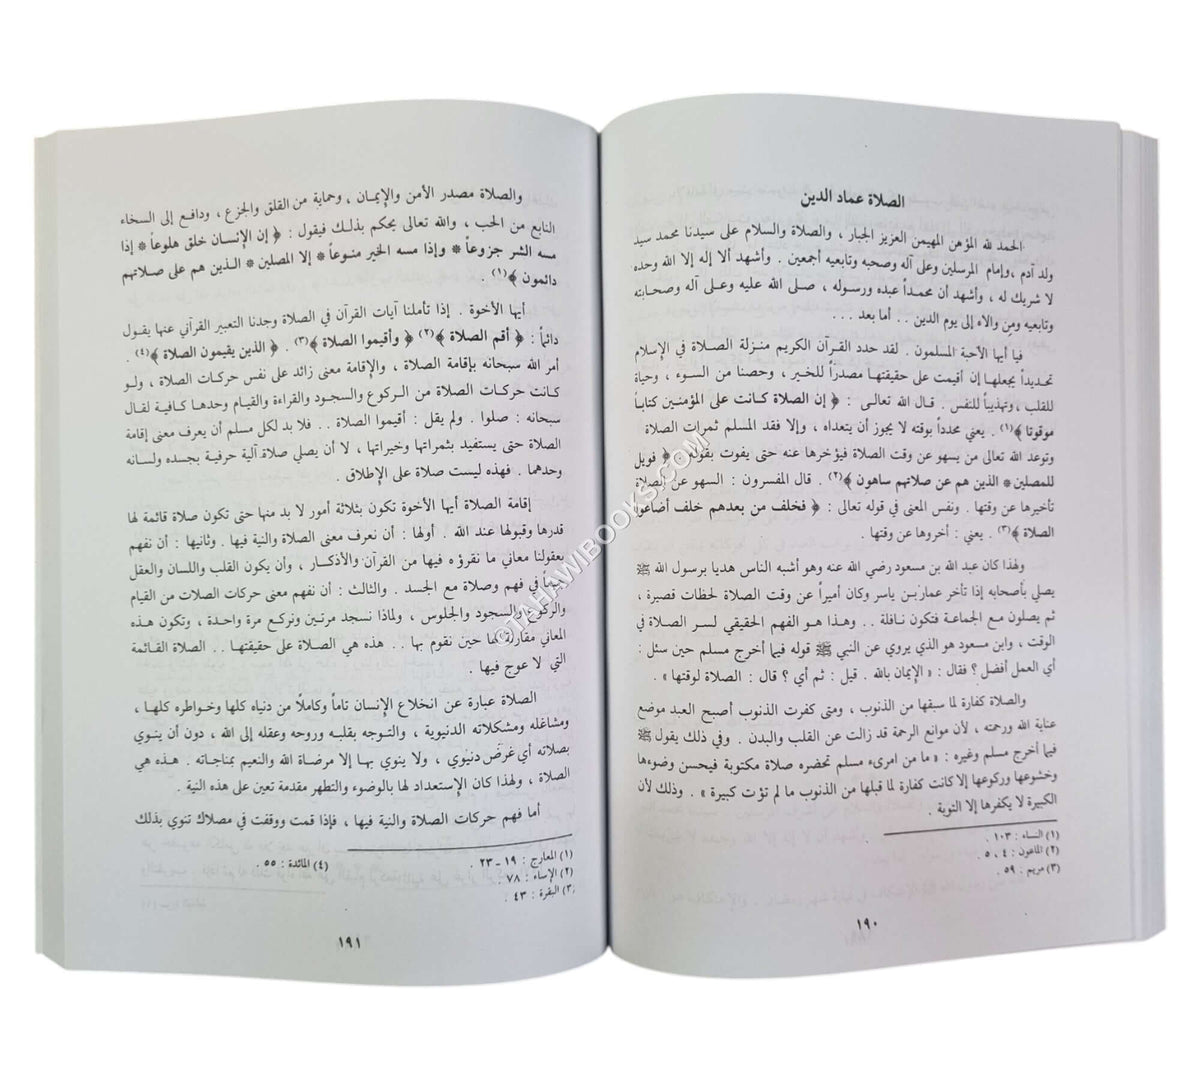 الصلاة عماد الدين
الحمد لله المؤمن المهيمن العزيز الجبار ، والصلاة والسلام على سيدنا محمد سيد
ولد آدم ، وإمام المرسلين وعلى آله وصحبه وتابعيه أجمعين . وأشهد ألا إله إلا الله وحده
لا شريك له ، وأشهد أن محمداً عبده ورسوله ، صلى الله عليه وعلى آله وصحابته
وتابعيه ومن والاه إلى يوم الدين . . أما بعد . . .
فيا أيها الأحبة المسلمون . لقد حدد القرآن الكريم منزلة الصلاة في الإسلام
تحديداً يجعلها إن أقيمت على حقيقتها مصدراً للخير ، وحصنا من السوء ، وحياة
للقلب ، وتهذيباً للنفس . قال الله تعالى : ﴿ إن الصلاة كانت على المؤمنين كتاباً
موقوتا ﴾(١) . يعني محدداً بوقته لا يجوز أن يتعداه ، وإلا فقد المسلم ثمرات الصلاة
وتوعد الله تعالى من يسهو عن وقت الصلاة فيؤخرها عنه حتى يفوت بقوله : ﴿ فويل
للمصلين * الذين هم عن صلاتهم ساهون ﴾(٢) . قال المفسرون : السهو عن الصلاة
تأخيرها عن وقتها . ونفس المعنى في قوله تعالى : ﴿ فخلف من بعدهم خلف أضاعوا
الصلاة ﴾(٣) . يعني : أخروها عن وقتها .
ولهذا كان عبد الله بن مسعود رضي الله عنه وهو أشبه الناس هديا برسول الله ﷺ
يصلي بأصحابه إذا تأخر عمار بن ياسر وكان أميراً عن وقت الصلاة لحظات قصيرة ،
ثم يصلون مع الجماعة فتكون نافلة . . وهذا هو الفهم الحقيقي لسر الصلاة في
الوقت ، وابن مسعود هو الذي يروي عن النبي ﷺ قوله فيما أخرج مسلم حين سئل :
أي العمل أفضل ؟ فقال : « الإيمان بالله . قيل : ثم أي ؟ قال : الصلاة لوقتها » .
والصلاة كفارة لما سبقها من الذنوب ، ومتى كفرت الذنوب أصبح العبد موضع
عناية الله ورحمته ، لأن موانع الرحمة قد زالت عن القلب والبدن . وفي ذلك يقول ﷺ
فيما أخرج مسلم وغيره : « ما من امرىء مسلم تحضره صلاة مكتوبة فيحسن وضوءها
وخشوعها وركوعها إلا كانت كفارة لما قبلها من الذنوب ما لم تؤت كبيرة » . وذلك لأن
الكبيرة لا يكفرها إلا التوبة .
(١) النساء : ١٠٣ .
(٢) الماعون : ٤ ، ٥ .
(٣) مريم : ٥٩ .
١٩٠
والصلاة مصدر الأمن والإيمان ، وحماية من القلق والجزع ، ودافع إلى السخاء
النابع من الحب ، والله تعالى يحكم بذلك فيقول : ﴿ إن الإنسان خلق هلوعاً * إذا
مسه الشر جزوعاً * وإذا مسه الخير منوعاً * إلا المصلين * الذين هم على صلاتهم
دائمون ﴾(١) .
أيها الأخوة . إذا تأملنا آيات القرآن في الصلاة وجدنا التعبير القرآني عنها يقول
دائماً : ﴿ أقم الصلاة ﴾(٢) ﴿ وأقيموا الصلاة ﴾(٣) . ﴿ الذين يقيمون الصلاة ﴾(٤) .
أمر الله سبحانه بإقامة الصلاة ، والإقامة معنى زائد على نفس حركات الصلاة ، ولو
كانت حركات الصلاة من الركوع والسجود والقراءة والقيام وحدها كافية لقال
سبحانه : صلوا . ولم يقل : أقيموا الصلاة . . فلا بد لكل مسلم أن يعرف معنى إقامة
الصلاة حتى يستفيد بثمراتها وخيراتها ، لا أن يصلي صلاة آلية حرفية بجسده ولسانه
وحدهما . فهذه ليست صلاة على الإطلاق .
إقامة الصلاة أيها الأخوة تكون بثلاثة أمور لا بد منها حتى تكون صلاة قائمة لها
قدرها وقبولها عند الله . أولها : أن نعرف معنى الصلاة والنية فيها . وثانيها : أن نفهم
بعقولنا معاني ما نقرؤه فيها من القرآن والأذكار ، وأن يكون القلب واللسان والعقل
جميعاً في فهم وصلاة مع الجسد . والثالث : أن نفهم معنى حركات الصلات من القيام
والركوع والسجود والجلوس ، ولماذا نسجد مرتين ونركع مرة واحدة ، وتكون هذه
المعاني مقارنة لها حين نقوم بها . . هذه هي الصلاة على حقيقتها . . الصلاة القائمة
التي لا عوج فيها .
الصلاة عبارة عن انخلاع الإنسان تاماً وكاملاً من دنياه كلها وخواطره كلها ،
ومشاغله ومشكلاته الدنيوية ، والتوجه بقلبه وروحه وعقله إلى الله ، دون أن ينوي
بصلاته أي غرض دنيوي ، ولا ينوي بها إلا مرضاة الله والنعيم بمناجاته . هذه هي
الصلاة ، ولهذا كان الإستعداد لها بالوضوء والتطهر مقدمة تعين على هذه النية .
أما فهم حركات الصلاة والنية فيها ، فإذا قمت ووقفت في مصلاك تنوي بذلك
(١) المعارج : ١٩ - ٢٣ .
(٢) الإساء : ٧٨ .
(٣) البقرة : ٤٣ .
(٤) المائدة : ٥٥ .
١٩١
©TAHAWIBOOKS.COM